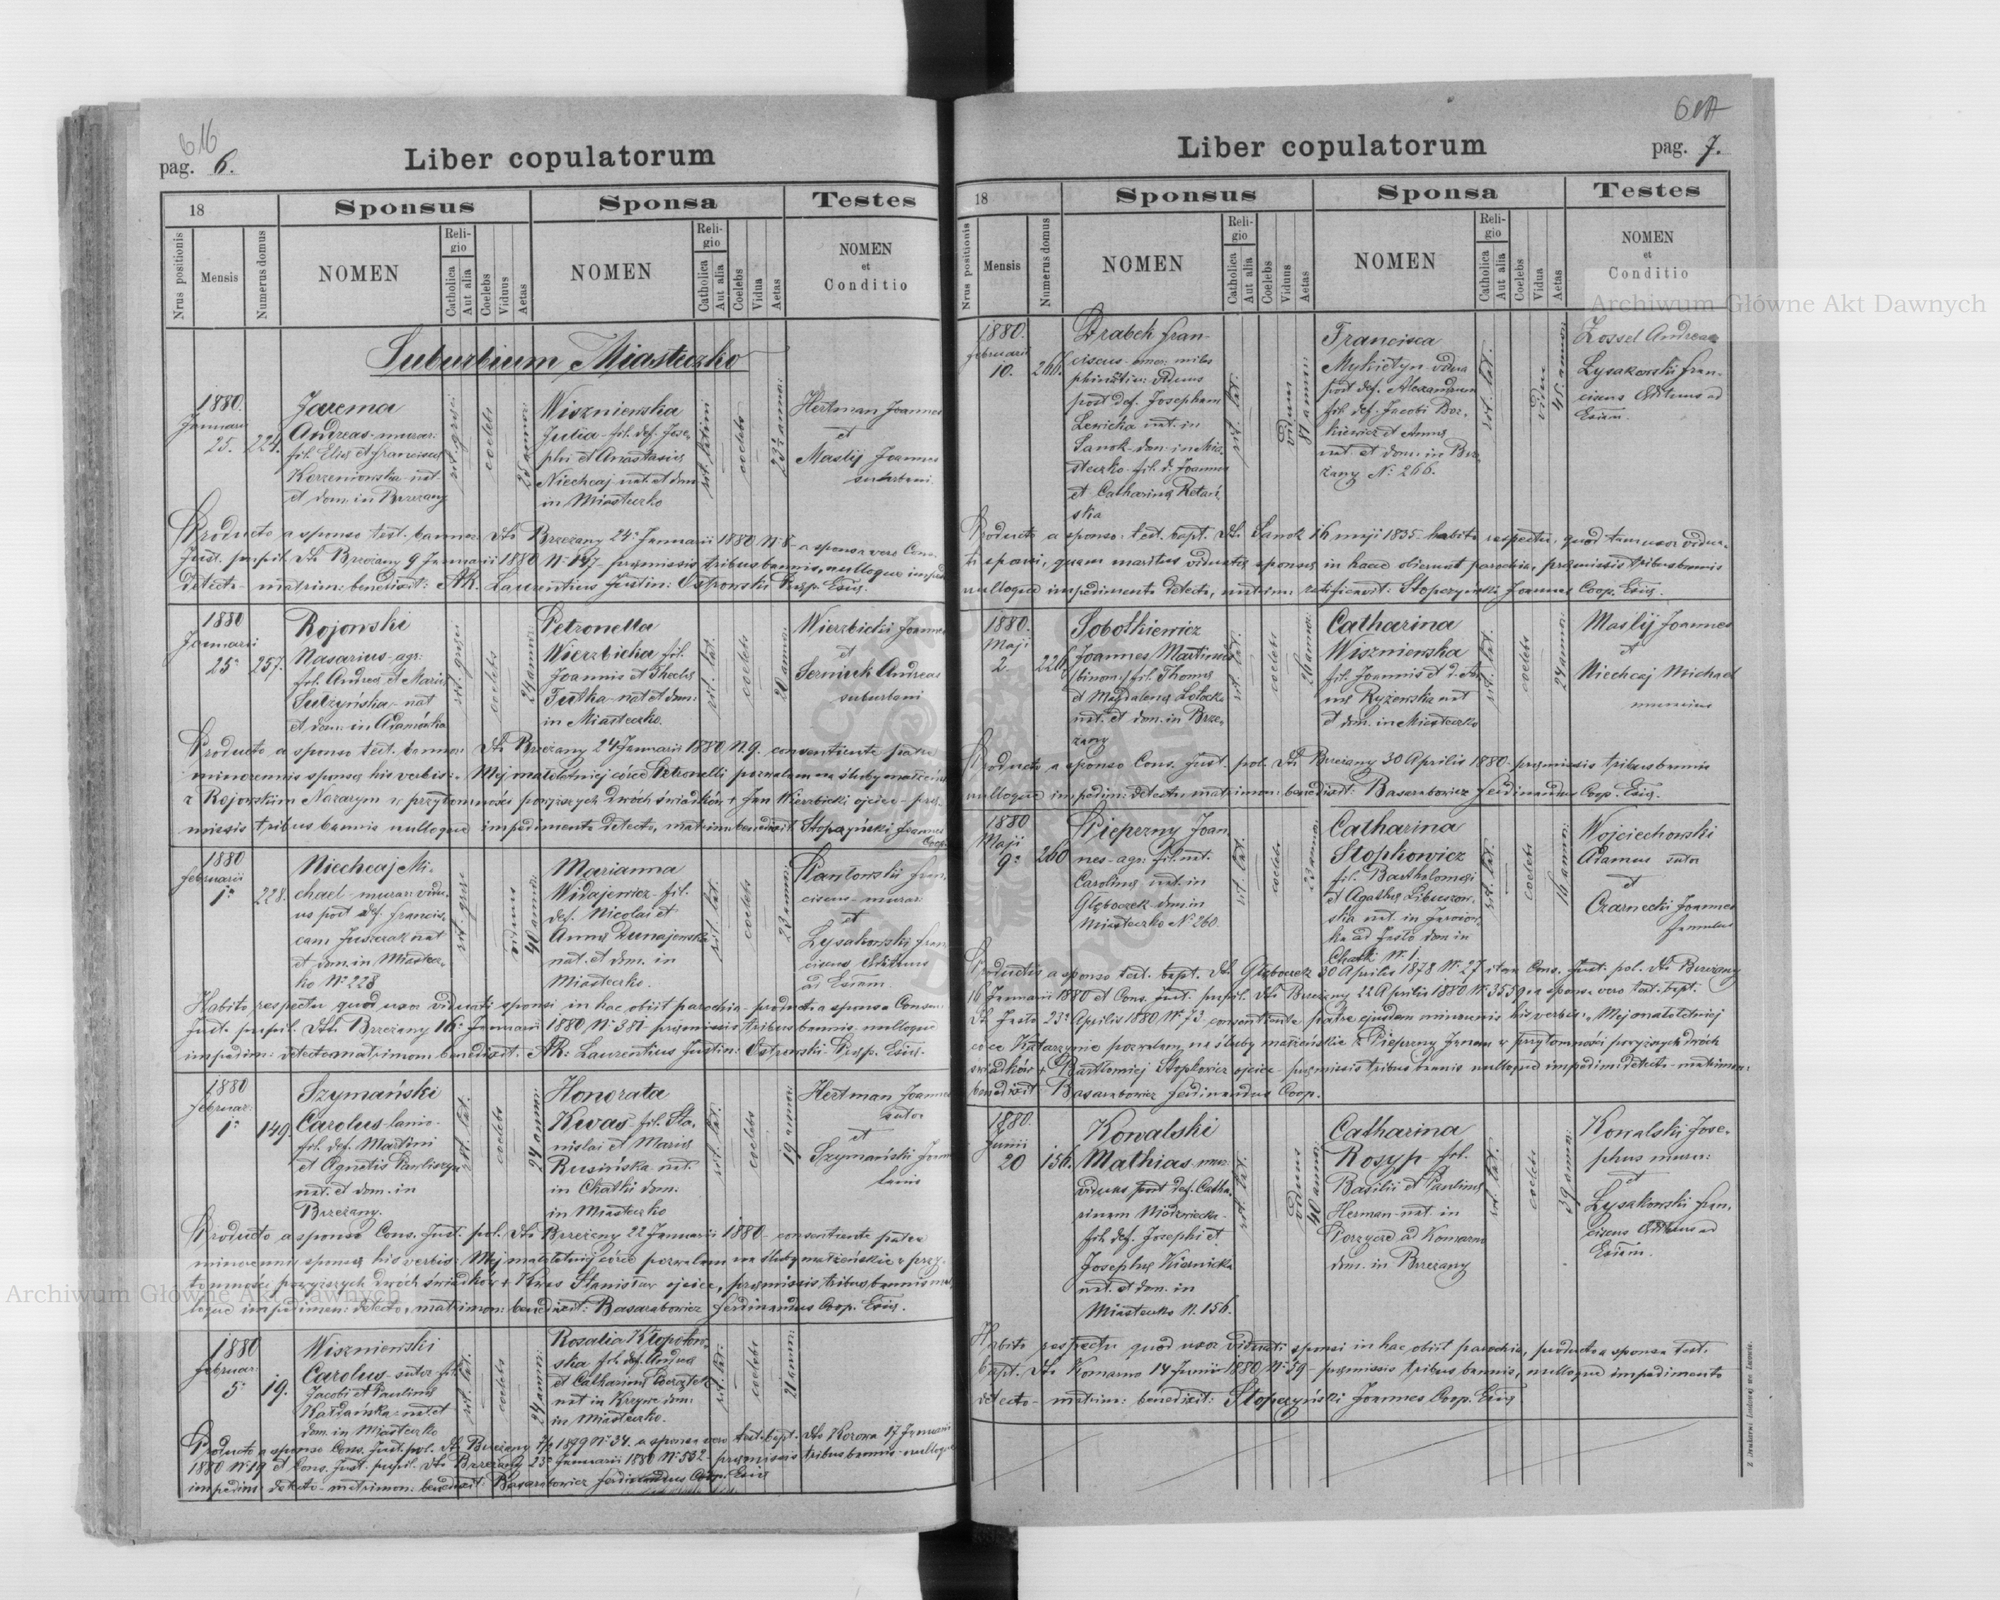 616
pag. 6.
Liber copulatorum
18
Sponsus
Sponsa
Testes
Nrus positionis
Mensis
Numerus domus
NOMEN
Religio
Catholica
Aut alia
Coelebs
Viduus
Aetas
NOMEN
Religio
Catholica
Aut alia
Coelebs
Vidua
Aetas
NOMEN
et
Conditio
Suburbium Miasteczko
1880.
Januarii
25.
224.
Jarema
Andreas - murar:
fil. Eliæ et Franciscæ
Korzeniowska - nat
et dom. in Brzeżany
rit. græci
coelebs
Wiszniewska
Julia - fil. def. Jose-
phi et Anastasiæ
Niechcaj - nat. et dom.
in Miasteczko
rit. latini
coelebs
23 annor:
Hertman Joannes
et
Maslij Joannes
suburbani.
Producto a sponso test. bannor. dto Brzeżany 24 Januarii 1880 N. 8 - a sponsa vero Cons.
Just. pupil. dto Brzeżany 9 Januarii 1880 præmissis tribus bannis, nulloque imped.
detecto - matrim: benedixit: AR. Laurentius Justin: Ostrowski
1880
Januarii
25
257.
Rojowski
Nasarius - agr:
fil. Andreæ et Mariæ
Sulzyńska - nat
et dom. in Adamówka
rit. græci
coelebs
24 annor:
Petronella
Wierzbicka fil.
Joannis et Theclæ
Tutka - nat et dom.
in Miasteczko.
rit. lat.
coelebs
20 annor:
Wierzbicki Joannes
et
Serniuk Andreas
suburbani
Producto a sponso test. bannor. dto Brzeżany 24 Januarii 1880 N. 9. consentiente patre
minorennis sponsæ his verbis: "Mej małoletniej córce Petronelli pozwalam na śluby małżeńskie
z Rojowskim Nazarym w przytomności powyższych dwóch świadków + Jan Wierzbicki ojciec - præ-
missis tribus bannis nulloque impedimento detecto, matrim: benedixit Stopczyński Joannes
Coop.
1880
februarii
1
228.
Niechcaj Mi-
chael - murar: vidu-
us post def. Francis-
cam Juszczak nat
et dom. in Miastecz-
ko N. 228
rit. græci
viduus
40 annor:
Marianna
Widajewicz - fil.
def. Nicolai et
Annæ Dunajewska
nat. et dom. in
Miasteczko.
rit. lat.
coelebs
23 annor:
Pawłowski Fran-
ciscus - murar
et
Lysakowski Fran-
ciscus Ædituus
ad Esiam
Habito respectu quod uxor viduati sponsi in hac obiit parochia - producto a sponsa Consen:
Just. pupil. dto Brzeżany 16 Januarii 1880 N. 381 præmissis tribus bannis - nulloque
impedim: detecto matrimon: benedixit: AR: Laurentius Justin: Ostrowski
1880
februar:
1
149.
Szymański
Carolus - lanio -
fil. def. Martini
et Agnetis Pawliszyn
nat. et dom. in
Brzeżany.
rit. lat.
coelebs
24 annor:
Honorata
Kwas - fil. Sta-
nislai et Mariæ
Rusińska - nat.
in Chatki dom.
in Miasteczko
rit. lat.
coelebs
19 annor:
Hertman Joannes
sutor
et
Szymański
lanio
Producto a sponso Cons. Just. pol. dto Brzeżany 22 Januarii 1880 - consentiente patre
minorennis sponsæ his verbis: Mej małoletniej córce pozwalam na śluby małżeńskie w przy-
tomności powyższych dwóch świadków + Kwas Stanisław ojciec, præmissis tribus bannis nul-
loque impedimen: detecto, matrimon: benedixit: Basarabowicz Ferdinandus Coop. Esiæ.
1880
februar:
5
19.
Wiszniewski
Carolus - sutor fil.
Jacobi et Paulinæ
Kardańska - nat et
dom. in Miasteczko
rit. lat.
coelebs
24 annor:
Rosalia Kłopotow-
ska fil. def. Andreæ
et Catharinæ
nat in Krzywe dom:
in Miasteczko.
rit. lat.
coelebs
21 annor:
Producto a sponso Cons. Just. pol. dto Brzeżany 1879 N. 34. a sponsa vero test. bapt. dto Korowa 17 Januarii
1880 N. 19 et Cons. Just. pupil. dto Brzeżany 23 Januarii 1880 N. 532 - præmissis tribus bannis - nulloque
impedim: detecto - matrimon: benedixit: Basarabowicz Ferdinandus Coop. Esiæ
Liber copulatorum
pag. 7.
18
Sponsus
Sponsa
Testes
Nrus positionis
Mensis
Numerus domus
NOMEN
Religio
Catholica
Aut alia
Coelebs
Viduus
Aetas
NOMEN
Religio
Catholica
Aut alia
Coelebs
Vidua
Aetas
NOMEN
et
Conditio
1880.
februarii
10.
266.
Drabek Fran-
ciscus - miles
viduus
post def. Josepham
Lewicka nat. in
Sanok - dom: in Mia-
steczko - fil. d. Joannis
et Catharinæ Retań-
ska
rit. lat.
viduus
Francisca
Mykietyn - vidua
post def. Alexandrum
fil. def. Jacobi Ber-
kiewicz et Annæ
nat - et dom: in Brze-
żany N: 266.
rit. lat.
vidua
45 annor:
Zossel Andreas
Lysakowski Fran-
ciscus Ædituus ad
Esiam.
Producto a sponso: test. bapt. dto Sanok 16 maji 1835 - habito respectu, quod tam uxor vidua-
ti sponsi, quam maritus viduatæ sponsæ in hacce obierunt parochia, præmissis tribus bannis
nulloque impedimento detecto, matrim: ratificavit: Stopczyński Joannes Coop. Esiæ.
1880.
Maji
2.
226
Sobotkiewicz
Joannes Martinus
(binom.) fil. Thomæ
et Magdalenæ
nat. et dom. in Brze-
żany
rit. lat.
coelebs
26 annor:
Catharina
Wiszniewska
fil. Joannis et d. An-
næ Ryżewska nat
et dom. in Miasteczko
rit. lat.
coelebs
24 annor:
Maslij Joannes
et
Niechcaj Michael
Producto a sponso Cons. Just. pol. dto Brzeżany 30 Aprilis 1880 - præmissis tribus bannis
nulloque impedim: detecto matrimon: benedixit: Basarabowicz Ferdinandus Coop. Esiæ.
1880
Maji
9
260
Pieprzny Joan-
nes - agr: fil. nat.
Carolinæ nat. in
Głęboczek dom. in
Miasteczko N. 260
rit. lat.
coelebs
23 annor:
Catharina
Stopkowicz
fil. Bartholomæi
et Agathæ
nat. in
ad Jasło dom in
Chatki N. 1.
rit. lat.
coelebs
16 annor:
Wojciechowski
Adamus sutor
et
Czarnecki Joannes
famulus
Productis a sponso test. bapt. dto Głęboczek 30 Aprilis 1878 N. 27 Cons. Just. pol. dto Brzeżany
16 Januarii 1880 et Cons. Just. pupil. dto Brzeżany 22 Aprilis 1880 N. 3559 a sponsa vero test. bapt.
dto Jasło 23 Aprilis 1880 N. 73 - consentiente patre ejusdem minorennis his verbis: "Mej małoletniej
córce Katarzynie pozwalam na śluby małżeńskie z Pieprzny Janem w przytomności powyższych dwóch
świadków + Bartłomiej Stopkowicz ojciec - præmissis tribus bannis nulloque impedim: detecto - matrimon:
benedixit Basarabowicz Ferdinandus Coop.
1880.
Junii
20
156.
Kowalski
Mathias - mur:
viduus post def. Catha-
rinam
fil. def. Josephi et
Josephæ
nat. et dom. in
Miasteczko N. 156.
rit. lat.
viduus
40 annor:
Catharina
Rosyp fil.
Basilii et Paulinæ
Herman - nat - in
Porzycze ad Komarno
dom. in Brzeżany
rit. lat.
coelebs
39 annor:
Kowalski Jose-
phus murar:
et
Lysakowski Fran-
ciscus Ædituus ad
Esiam.
Habito respectu quod uxor viduati sponsi in hac obiit parochia, producto a sponsa test.
bapt. dto Komarno 14 Junii 1880 N. 59 - præmissis tribus bannis, nulloque impedimento
detecto - matrim: benedixit: Stopczyński Joannes Coop. Esiæ
Z drukarni Ludowej we Lwowie.
Archiwum Główne Akt Dawnych
Archiwum Główne Akt Dawnych